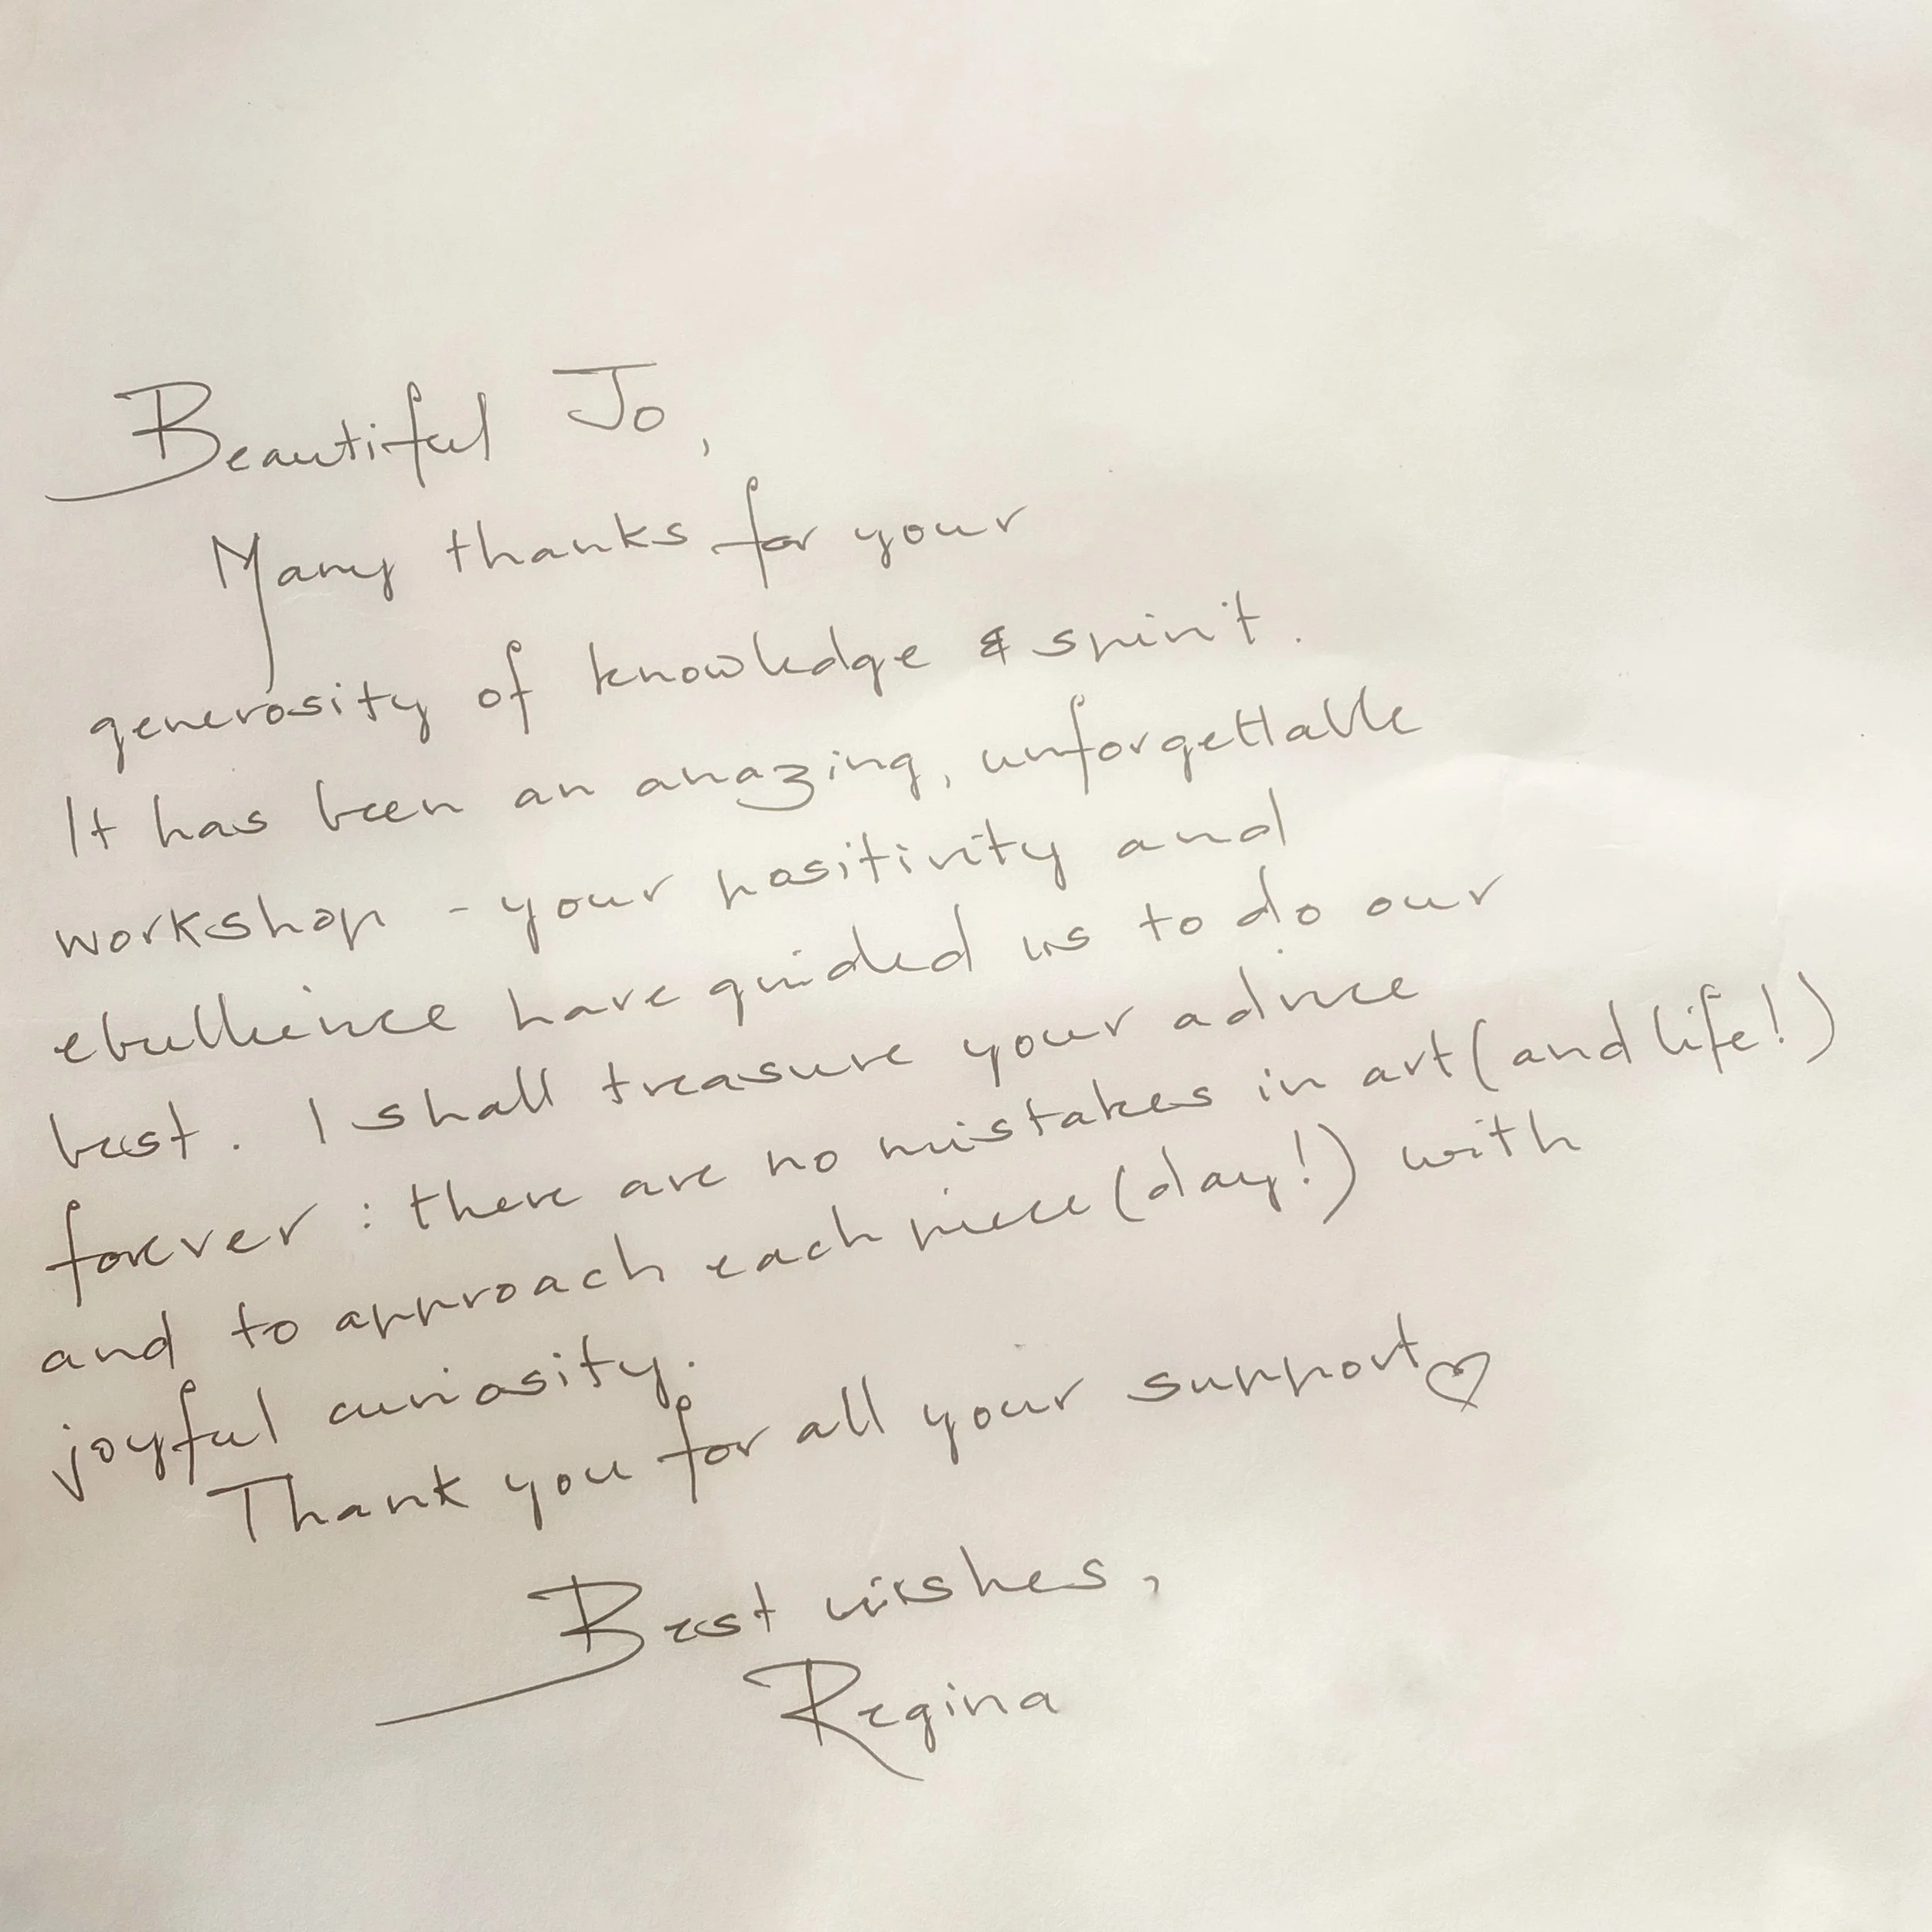 Beautiful Jo,
Many thanks for your
generosity of knowledge & spirit.
It has been an amazing, unforgettable
workshop - your positivity and
ebullience have guided us to do our
best. I shall treasure your advice
forever : there are no mistakes in art (and life!)
and to approach each piece (day!) with
joyful curiosity.
Thank you for all your support ♡
Best wishes,
Regina